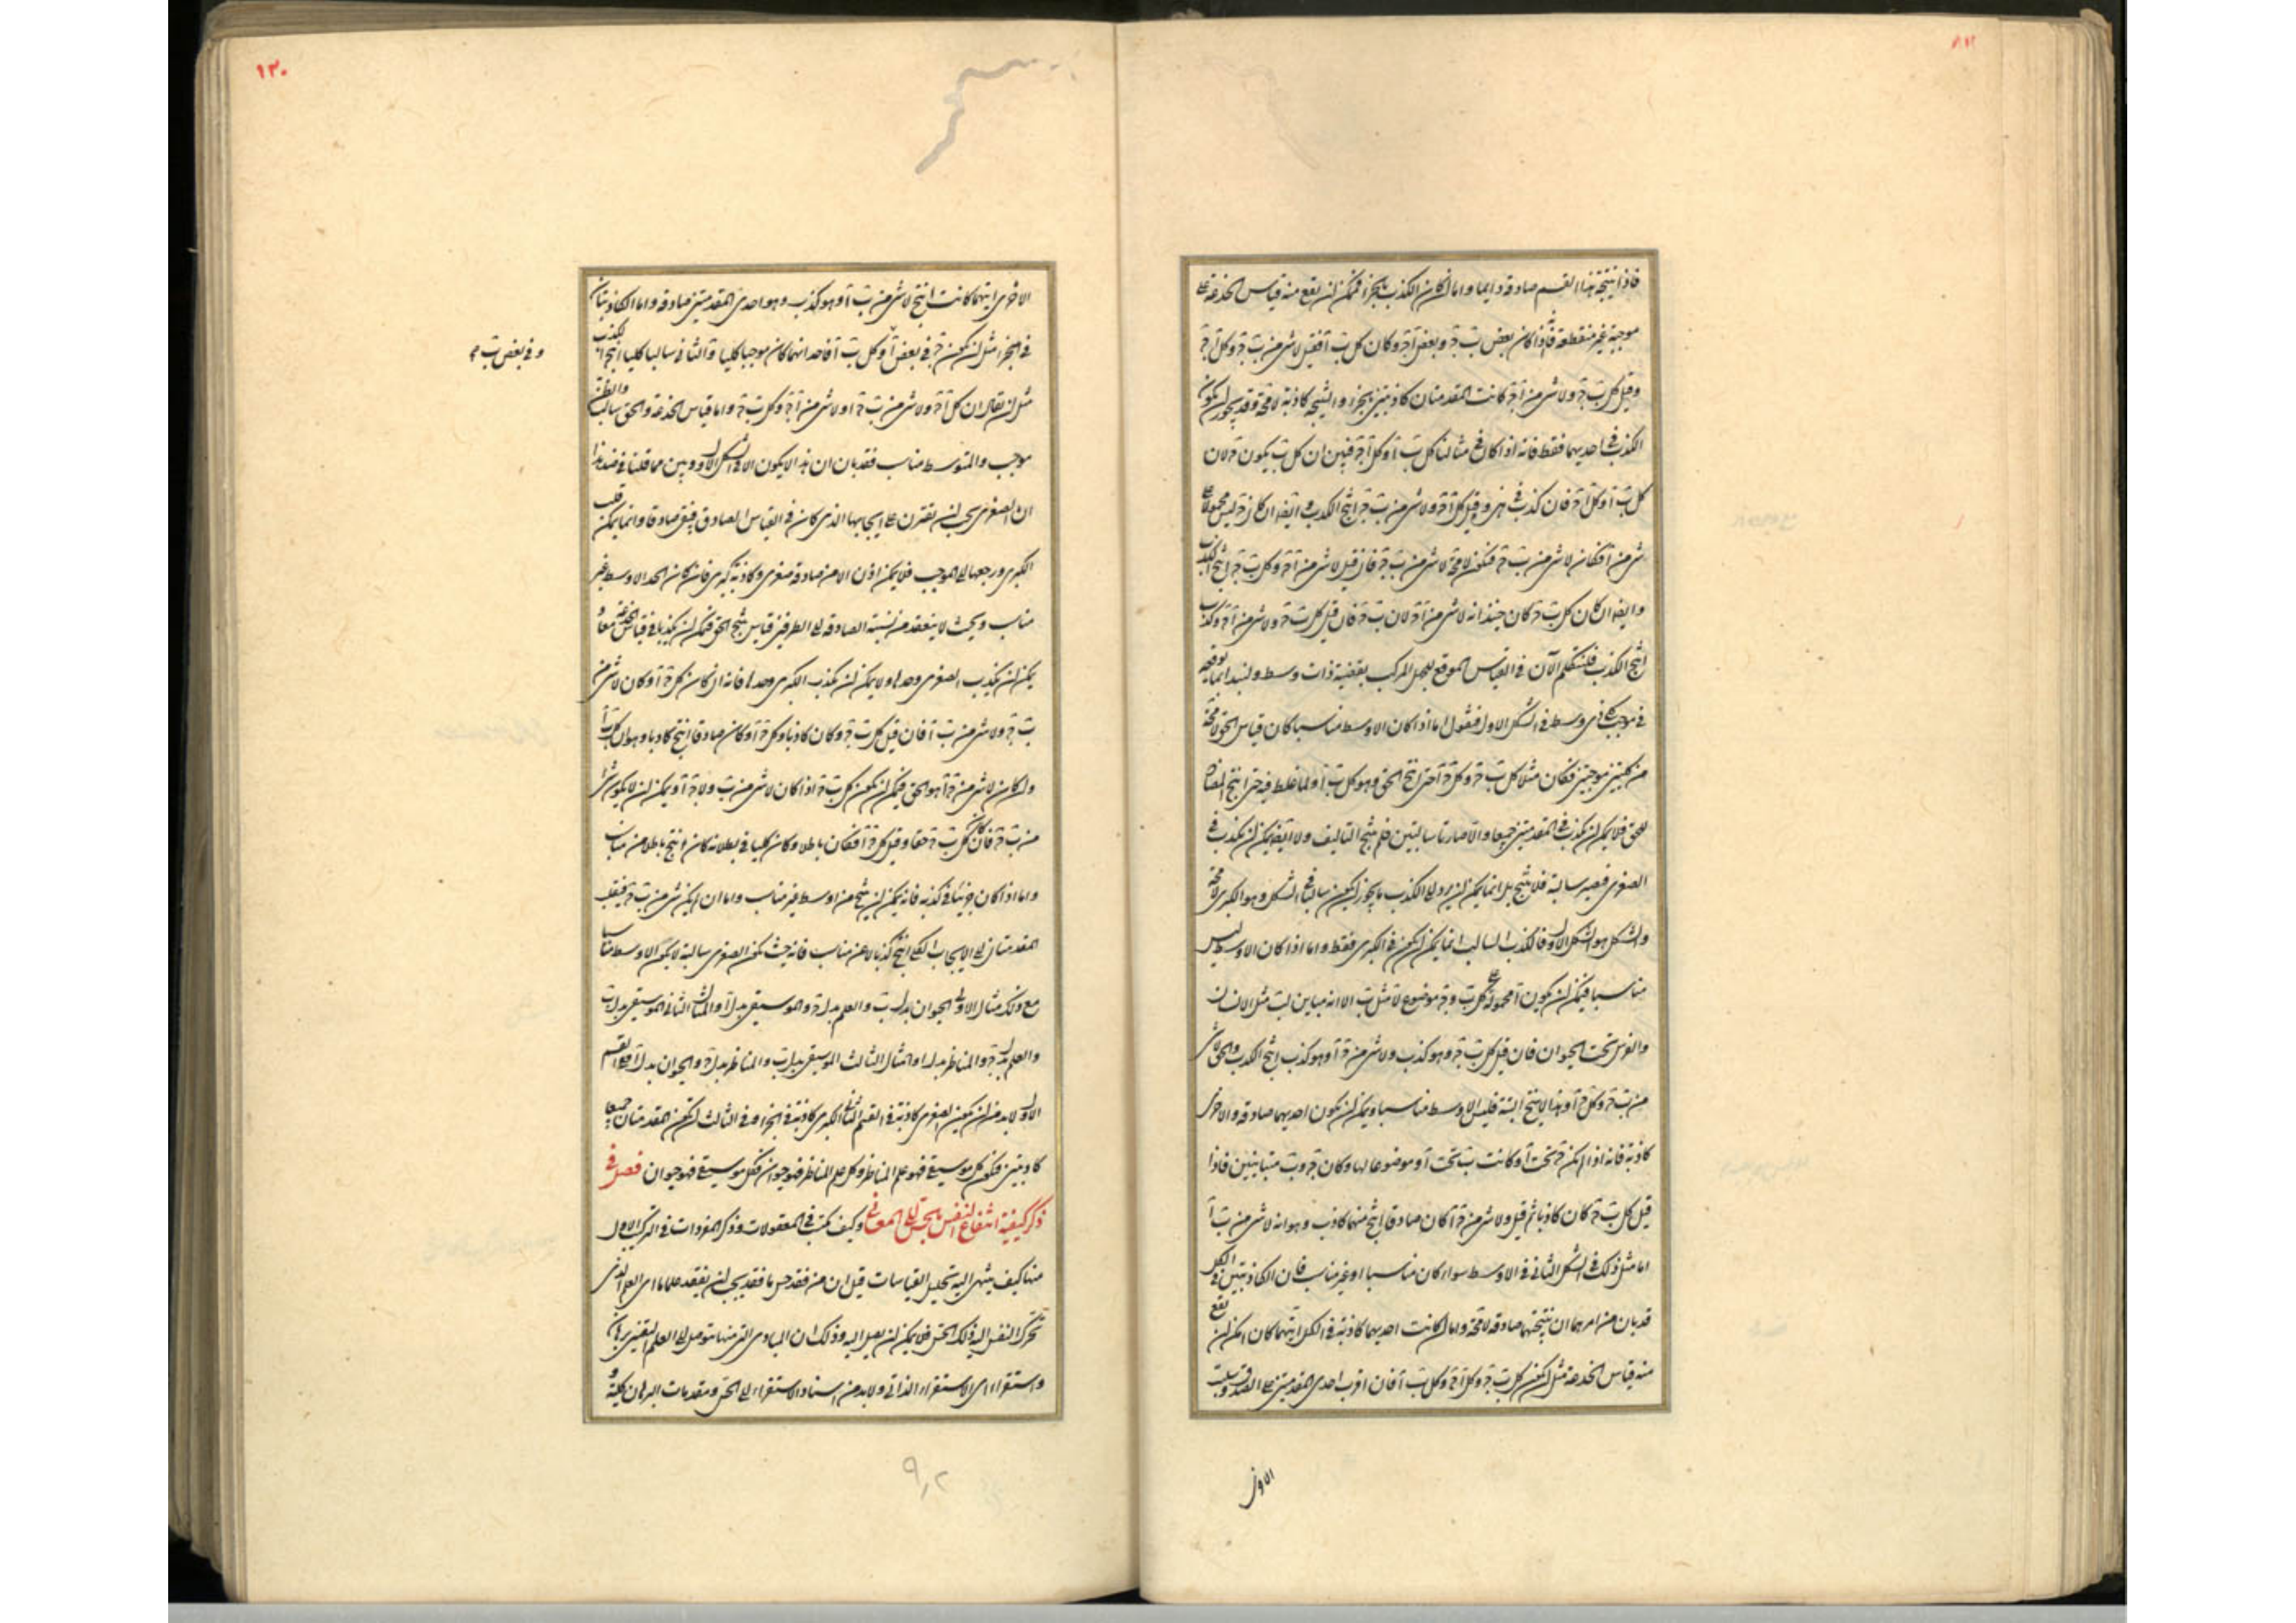 فاذا نتيجة هذا القسم صادقة دايما واما ان كان الكذب بالجزء فيمكن ان يقع منه قياس الخدعة على
موجبة غير منقطعة فانه اذا كان بعض ب ج وبعض آ ج وكان كل ب آ فقيل لا شئ من ب ج وكل آ ج
وقيل كل ب ج ولا شئ من آ ج كانت المقدمتان كاذبتين بالجزء والنتيجة كاذبة لا محة وقد يجوز ان يكون
الكذب في احديهما فقط فانه اذا كان في مثالنا كل ب آ وكل آ ج فبين ان كل ب يكون ج لان
كل ب آ وكل آ ج فان كذب في وقيل كل آ ج ولا شئ من ب ج انتج الكذب وايضا ان كان ج ليس محمولا على
شئ من آ فكان لا شئ من ب ج فتكون لا محة لا شئ من ب ج فان قيل لا شئ من آ ج وكل ب ج انتج الكذب
وايضا ان كان كل ب ج كان حينئذ انه لا شئ من آ ج لان ب ج فان قيل كل ب ج ولا شئ من آ ج وكذب
انتج الكذب فلنتكلم الآن في القياس الموقع للجهل المركب بقضية ذات وسط ولنبدا بما يوقعه
في موجب كلي ذي وسط في الشكل الاول فنقول اما اذا كان الاوسط مناسبا كان قياس الحق لا محة
من كليتين موجبتين فكان مثلا كل ب ج وكل ج آ حتى انتج الحق وهو كل ب آ ولما غلط فيه حتى انتج المضاد
للحق فلا يمكن ان يكذب في المقدمتين جميعا والا صارتا سالبتين فلم ينتج التاليف ولا ايضا يمكن ان يكذب في
الصغرى فتصير سالبة فلا ينتج بل انما يمكن ان يرد الى الكذب ما يجوز ان يكون سالبا في الشكل وهو الكبرى لا محة
والشكل هو الشكل الاول فالكذب السالب انما يمكن ان يكون في الكبرى فقط واما اذا كان الاوسط ليس
مناسبا فيمكن ان يكون آ محمولا على كل ب وج موضوع لآ مثل ب الا انه مباين لب مثل الانسان
والفرس تحت الحيوان فان قيل كل ب ج وهو كذب ولا شئ من ج آ وهو كذب انتج الكذب والحق لا شئ
من ب ج وكل ج آ وهذا لا ينتج البتة فليس الاوسط مناسبا ويمكن ان يكون احديهما صادقة والاخرى
كاذبة فانه اذا لم يكن ج تحت آ وكانت ب تحت آ وموضوعا لها وكان ج وب متباينين فاذا
قيل كل ب ج كان كاذبا ثم قيل ولا شئ من ج آ كان صادقا انتج منهما كاذب وهو انه لا شئ من ب آ
اما مثل ذلك في الشكل الثاني في الاوسط سواء كان مناسبا او غير مناسب فان الكاذبتين في الكل
قد بان من امرهما ان نتيجتهما صادقة لا محة واما ان كانت احديهما كاذبة في الكل ايتهما كان امكن ان يقع
منه قياس الخدعة مثل ان يكون كل ب ج وكل آ ج وكل ب آ فان اقرت احدى المقدمتين على الصدق وسلبت
الاخرى
١٣٠
الاخرى ايتهما كانت انتج لا شئ من ب آ وهو كذب وهو احدى المقدمتين صادقة واما الكاذبتان
في الجزء مثل ان يكون ج في بعض آ وكل ب آ فاحد ايتهما كان موجبا كليا والثاني سالبا كليا انتجا الكذب
وفي بعض ب
مثل ان يقال ان كل آ ج ولا شئ من ب ج او لا شئ من آ ج وكل ب ج واما قياس الخدعة والحق سالب والظن
موجب والمتوسط مناسب فقد بان ان هذا لا يكون الا في الشكل الاول وبين مما قلنا في ضد هذا
ان الصغرى يجب ان تقترن على ايجابها الذي كان في القياس الصادق فيبقى صادقا وانما يمكن قلب
الكبرى ورجعها الى الموجب فلا يمكن اذن الا من صادقة صغرى وكاذبة كبرى فان كان الحد الاوسط غير
مناسب وبحيث لا ينعقد من نسبة الصادقة الى الطرفين قياس ينتج الحق فيمكن ان يكذبا في قياس الخدعة معا و
يمكن ان يكذب الصغرى وحدها ولا يمكن ان يكذب الكبرى وحدها فانه ان كان كل ج آ وكان لا شئ من
ب ج ولا شئ من ب آ فان قيل كل ب ج وكان كاذبا وكل ج آ وكان صادقا انتج كاذبا وهو ان كل ب آ
وان كان لا شئ من ج آ هو الحق فيمكن ان يكون كل ب ج اذا كان لا شئ من ب ولا ج آ ويمكن ان لا يكون شئ
من ب ج فان كان كل ب ج حقا وقيل كل ج آ فكان باطلا وكان كليا في بطلانه كان انتج باطلا من مناسب
واما اذا كان جزئيا في كذبه فانه يمكن ان ينتج من اوسط غير مناسب واما ان لم يكن شئ من ب ج فيقلب
المقدمتان الى الايجاب الكلي انتج كذبا لا عن مناسب فانه حيث تكون الصغرى سالبة لا يكون الاوسط مناسبا
مع ذلك مثال الاول الحيوان بدل ب والعلم بدل ج والموسيقى بدل آ والمثال الثاني الموسيقى بدل ب
والعلم بدل ج والمناظر بدل ا والمثال الثالث الموسيقى بدل ب والمناظر بدل ج والحيوان بدل آ ففي القسم
الاول لا بد من ان يكون الصغرى كاذبة في القسم الثاني الكبرى كاذبة في الجزء وفي الثالث ان تكون المقدمتان جميعا
كاذبتين فتكون كل موسيقى فهو علم المناظر وكل علم المناظر فهو حيوان فكل موسيقى فهو حيوان فصل في
ذكر كيفية انتفاع النفس بالحس في المعاني وكيف يكتسب في المعقولات وذكر المفردات في التركيب الاول
منها كيف ينتهي اليه تحليل القياسات قيل ان من فقد حسا ما فقد يجب ان يفقد علما ما اى العلم الذى
تحرك النفس اليه ذلك الحس فلا يمكن ان يصل اليه وذلك ان المبادى التى منها يتوصل الى العلم اليقينى برهان
واستقراء اى الاستقراء الذاتي ولا بد من استناد الاستقراء الى الحس ومقدمات البرهان كلية و